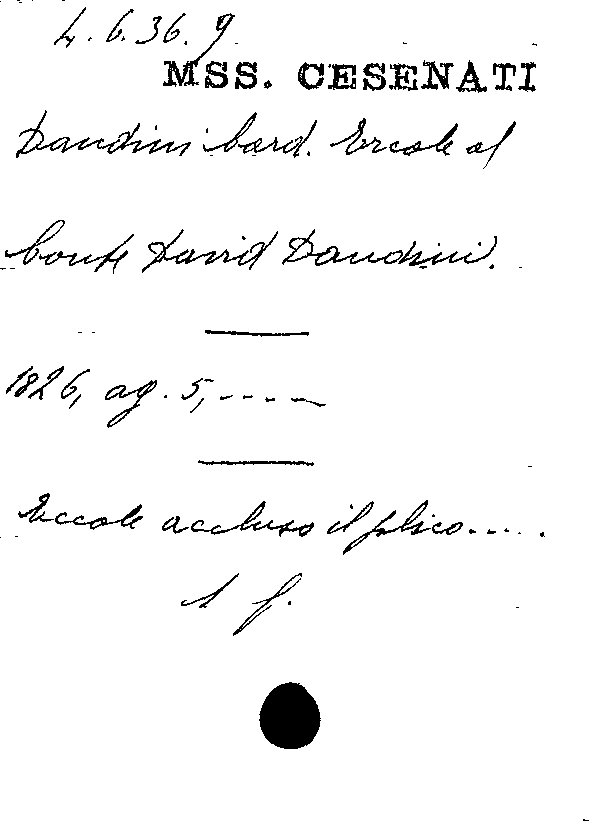 4.6.36.9
MSS. CESENATI
Dandini Card. Ercole al
Conte David Dandini.
1826, ag. 5, -----
Eccole accluso il plico.....
1 f.